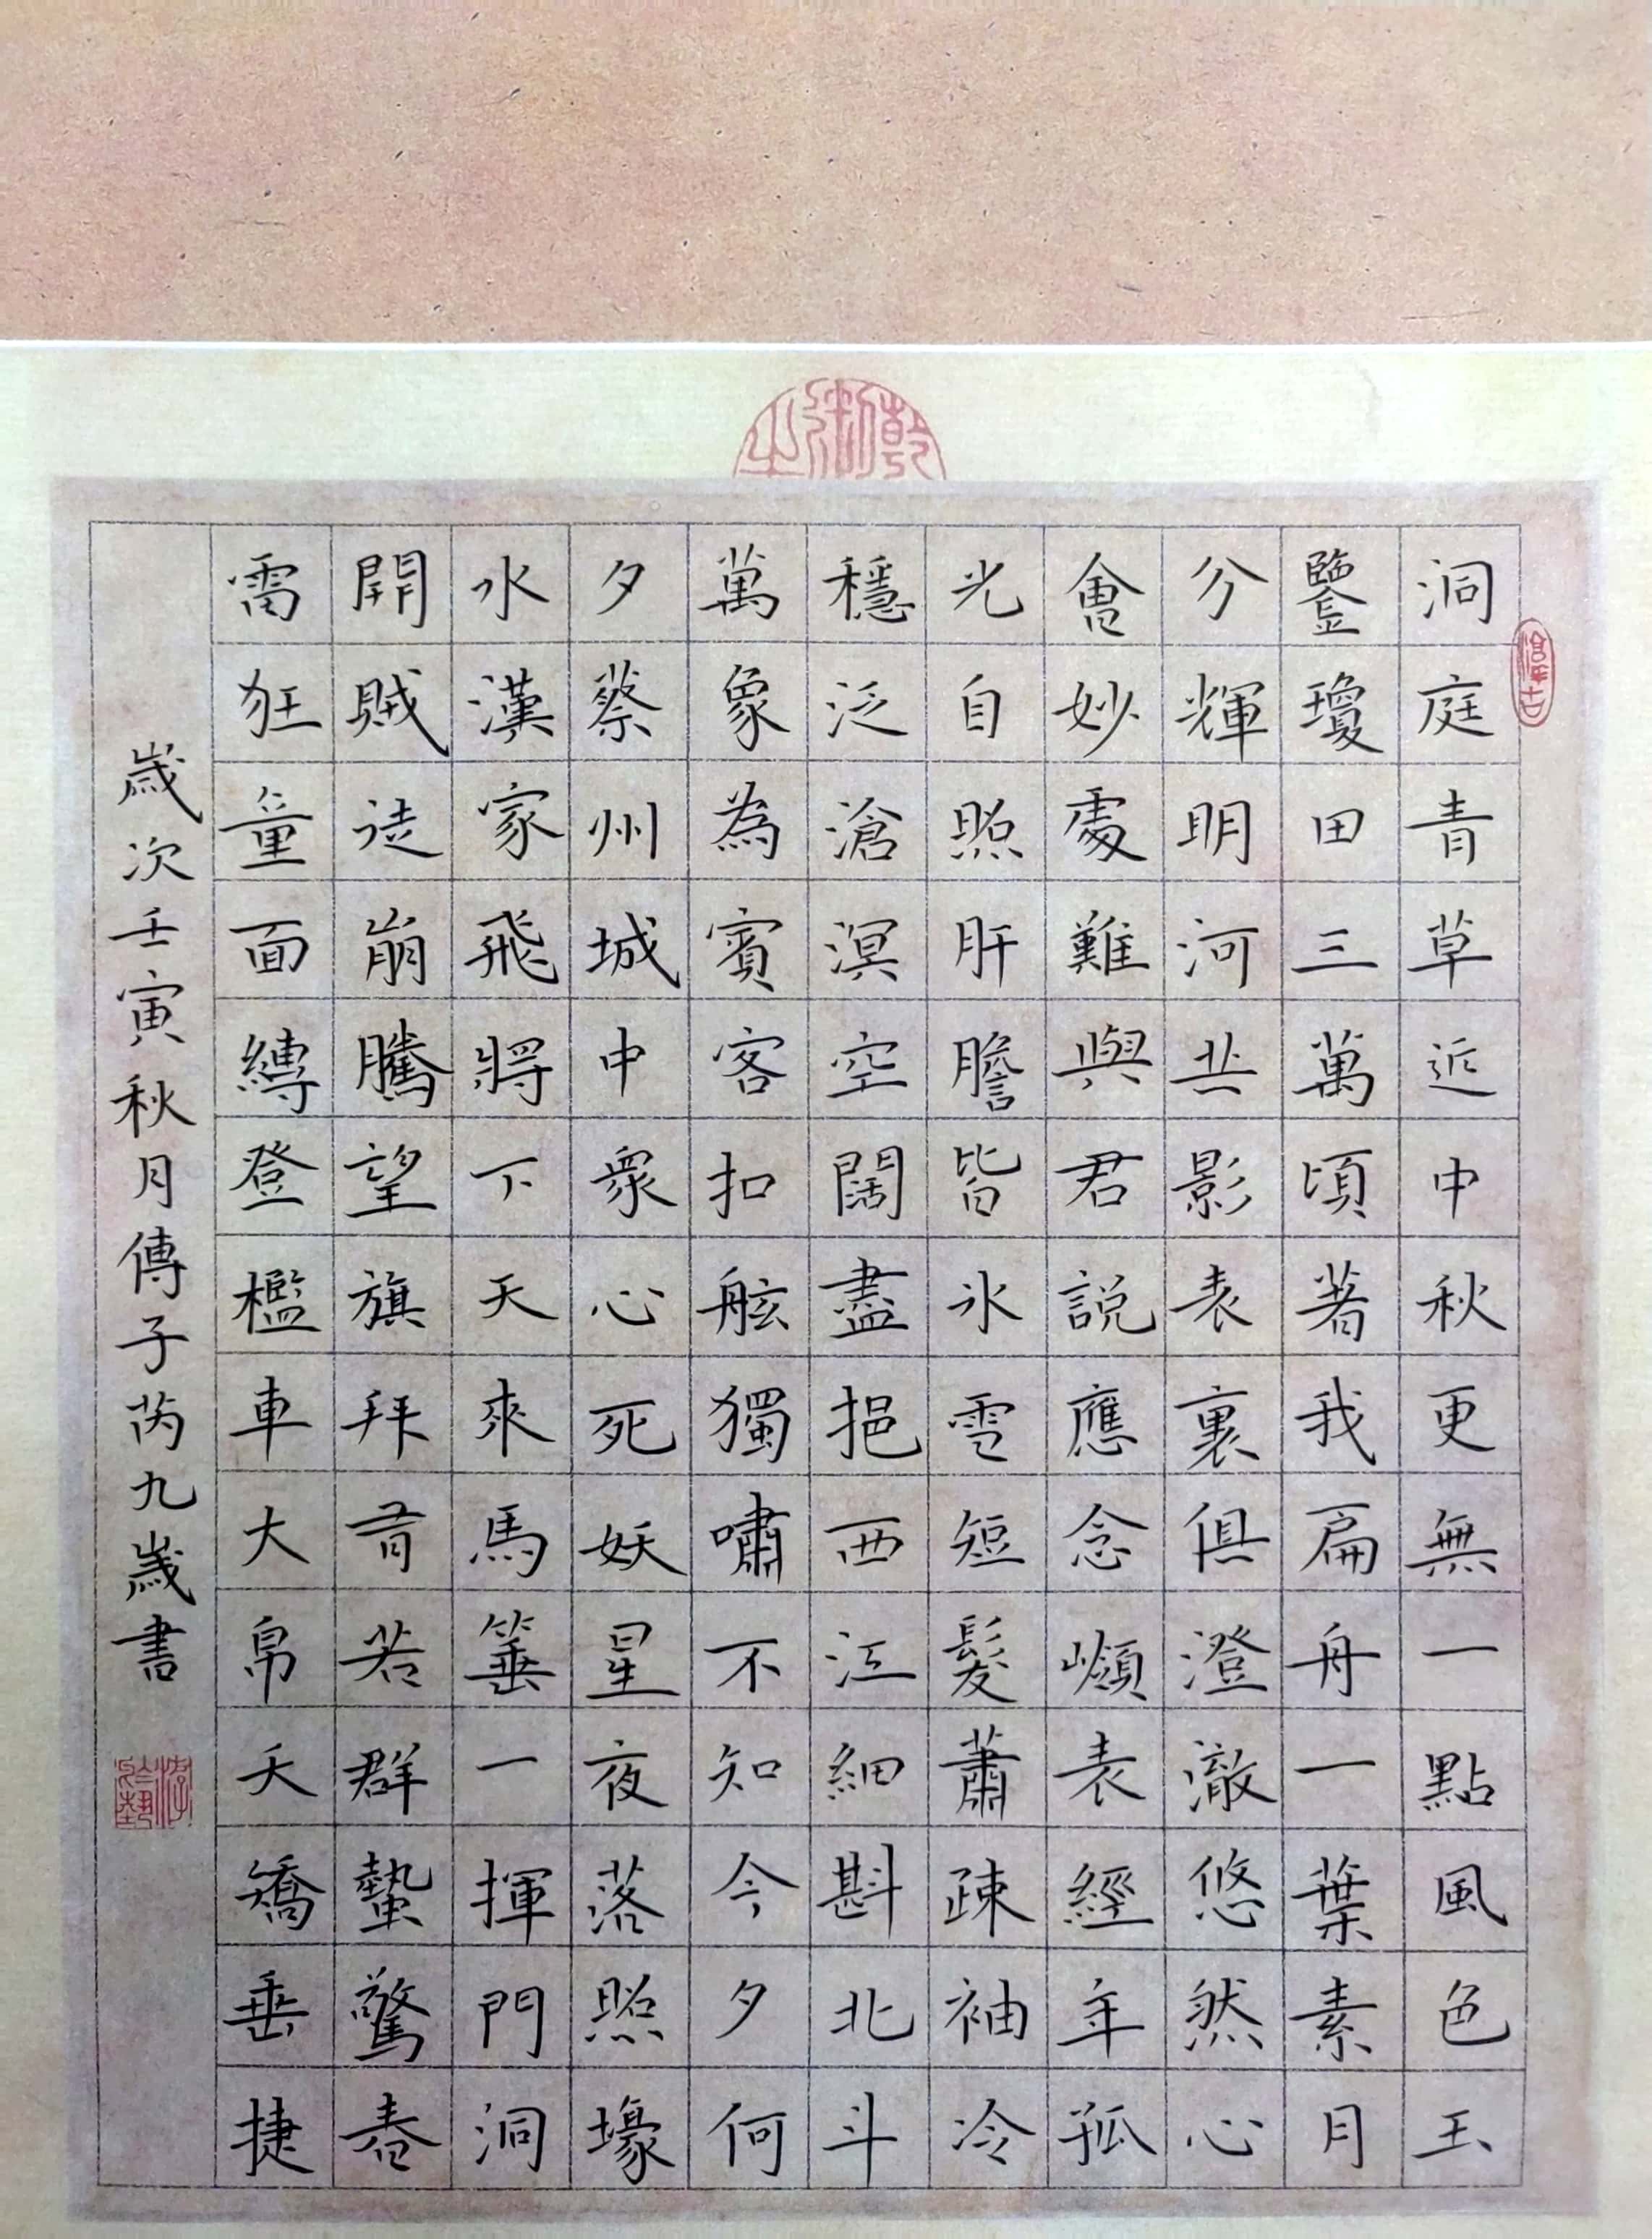 洞庭青草近中秋更無一點風色玉
鑒瓊田三萬頃著我扁舟一葉素月
分輝明河共影表裏俱澄澈悠然心
會妙處難與君說應念嶺表經年孤
光自照肝膽皆氷雪短髮蕭疎袖冷
穩泛滄溟空闊盡挹西江細斟北斗
萬象為賓客扣舷獨嘯不知今夕何
夕蔡州城中衆心死妖星夜落照壕
水漢家飛將下天來馬箠一揮門洞
開賊徒崩騰望旗拜有若群蟄驚春
雷狂童面縛登檻車大帛夭矯垂捷
歲次壬寅秋月傳子芮九歲書